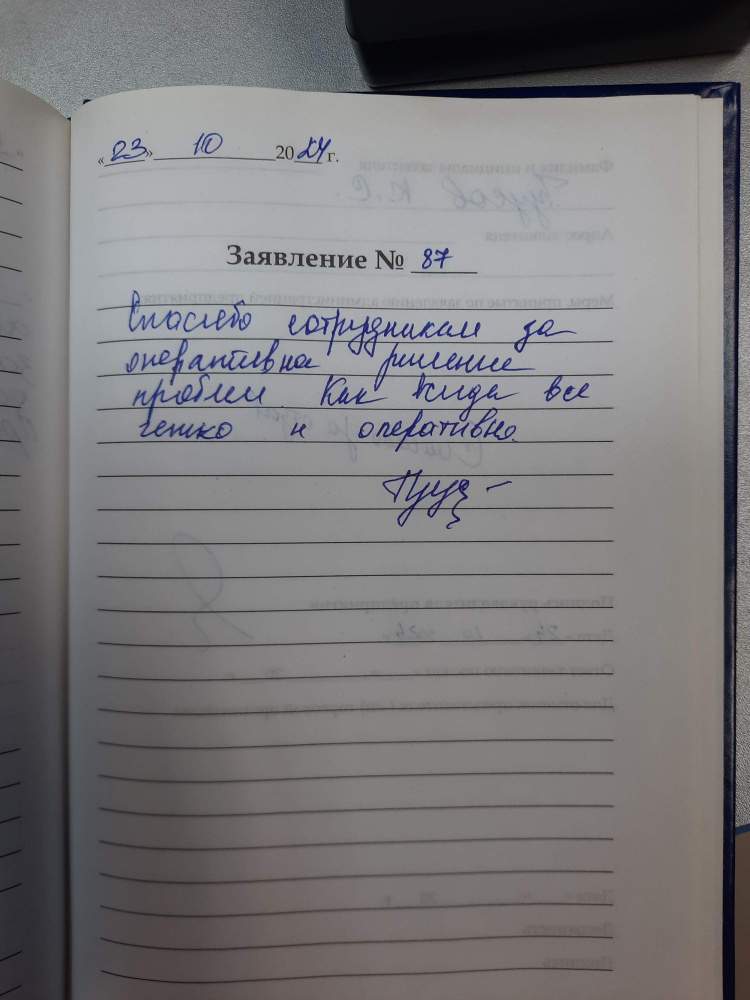 «23» 10 2024 г.
Заявление № 87
Спасибо сотрудникам за
оперативна решение
проблем Как всегда все
четко и оперативно.